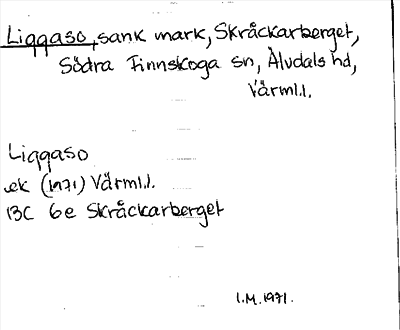 Liggaso, sank mark, Skråckarberget,
Södra Finnskoga sn, Älvdals hd,
Värml.l.
Liggaso
ek (1971) Värml.l.
13C 6e Skråckarberget
I.M. 1971.